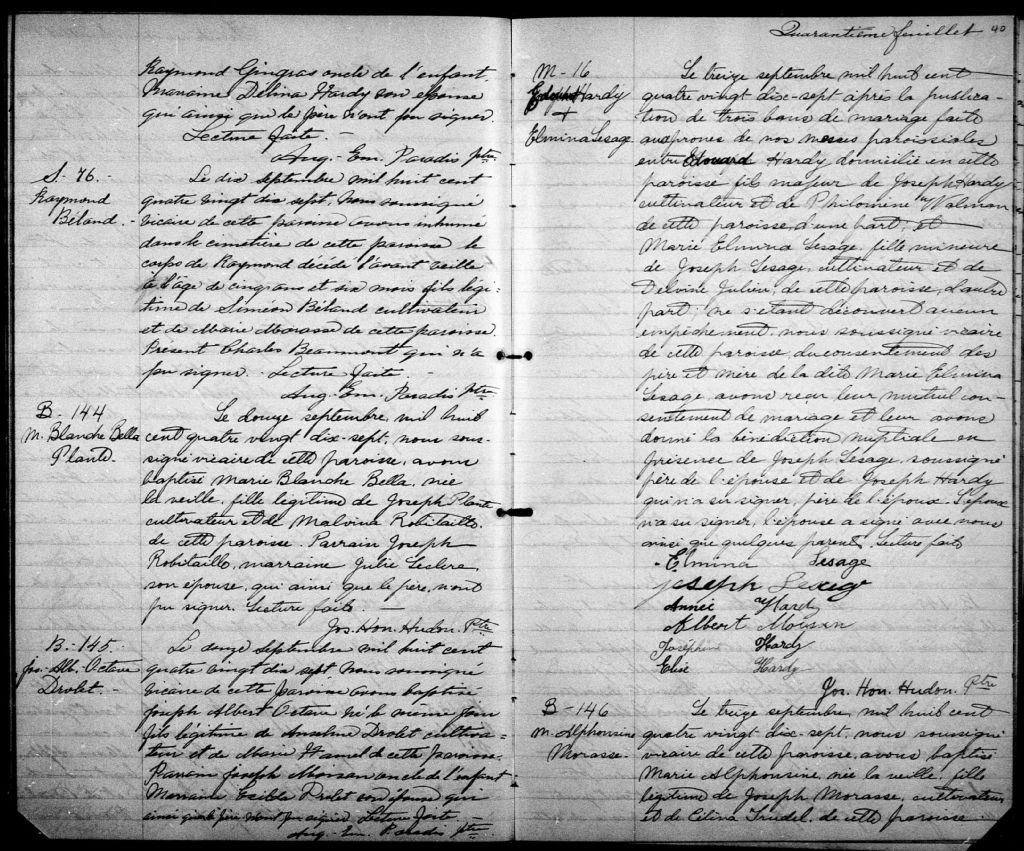 Raymond Gingras oncle de l'enfant.
Marraine Délina Hardy son épouse
qui ainsi que le père n'ont pu signer.
Lecture faite. -
Aug.- Em. Paradis ptre.
S- 76. -
Raymond
Béland. -
Le dix septembre mil huit cent
quatre vingt dix sept. Nous soussigné
vicaire de cette paroisse avons inhumé
dans le cimetière de cette paroisse le
corps de Raymond décédé l'avant veille
à l'âge de cinq ans et six mois fils légi-
time de Siméon Béland cultivateur
et de Marie Morasse de cette paroisse.
Présent Charles Beaumont qui n'a
pu signer. - Lecture faite. -
Aug.- Em. Paradis ptre.
B- 144
M. Blanche Bella
Plante.
Le douze septembre, mil huit
cent quatre vingt dix-sept, nous sous-
signé vicaire de cette paroisse, avons
baptisé Marie Blanche Bella, née
la veille, fille légitime de Joseph Plante
cultivateur et de Malvina Robitaille
de cette paroisse. Parrain Joseph
Robitaille, marraine Julie
son épouse, qui ainsi que le père, n'ont
pu signer. Lecture faite. -
Jos. Hon. Hudon. Ptre
B- 145.
Jos. Alb. Octave
Drolet. -
Le douze septembre mil huit cent
quatre vingt dix sept nous soussigné
vicaire de cette paroisse avons baptisé
Joseph Albert Octave né le même jour
fils légitime de Anselme Drolet cultiva-
teur et de Marie Hamel de cette paroisse.
Parrain Joseph Moisan oncle de l'enfant
Marraine Drolet son épouse qui
ainsi que le père n'ont pu signer. Lecture faite.
Aug.- Em. Paradis ptre.
Quarantième feuillet 40
M- 16
Hardy
+
Elmina Lesage
Le treize septembre mil huit cent
quatre vingt dix-sept après la publica-
tion de trois bans de mariage faite
aux prones de nos messes paroissiales
entre Edouard Hardy, domicilié en cette
paroisse fils majeur de Joseph Hardy
cultivateur et de Philomène Walman
de cette paroisse, d'une part; et
Marie Elmina Lesage, fille mineure
de Joseph Lesage, cultivateur et de
Delvine Julien, de cette paroisse, d'autre
part; ne s'étant découvert aucun
empêchement, nous soussigné vicaire
de cette paroisse, du consentement des
père et mère de la dite Marie Elmina
Lesage avons reçu leur mutuel con-
sentement de mariage et leur avons
donné la bénédiction nuptiale en
présence de Joseph Lesage, soussigné
père de l'épouse et de Joseph Hardy
qui n'a su signer, père de l'époux. L'époux
n'a su signer, l'épouse a signé avec nous
ainsi que quelques parents. Lecture faite
- Elmina Lesage
Joseph Lesage
Année Hardy
Albert Moisan
Joséphine Hardy
Elise Hardy
Jos. Hon. Hudon. Ptre
B- 146
M. Alphonsine
Morasse.
Le treize septembre, mil huit cent
quatre vingt dix-sept, nous soussigné
vicaire de cette paroisse, avons baptisé
Marie Alphonsine, née la veille, fille
légitime de Joseph Morasse, cultivateur
et de Célina Trudel, de cette paroisse.